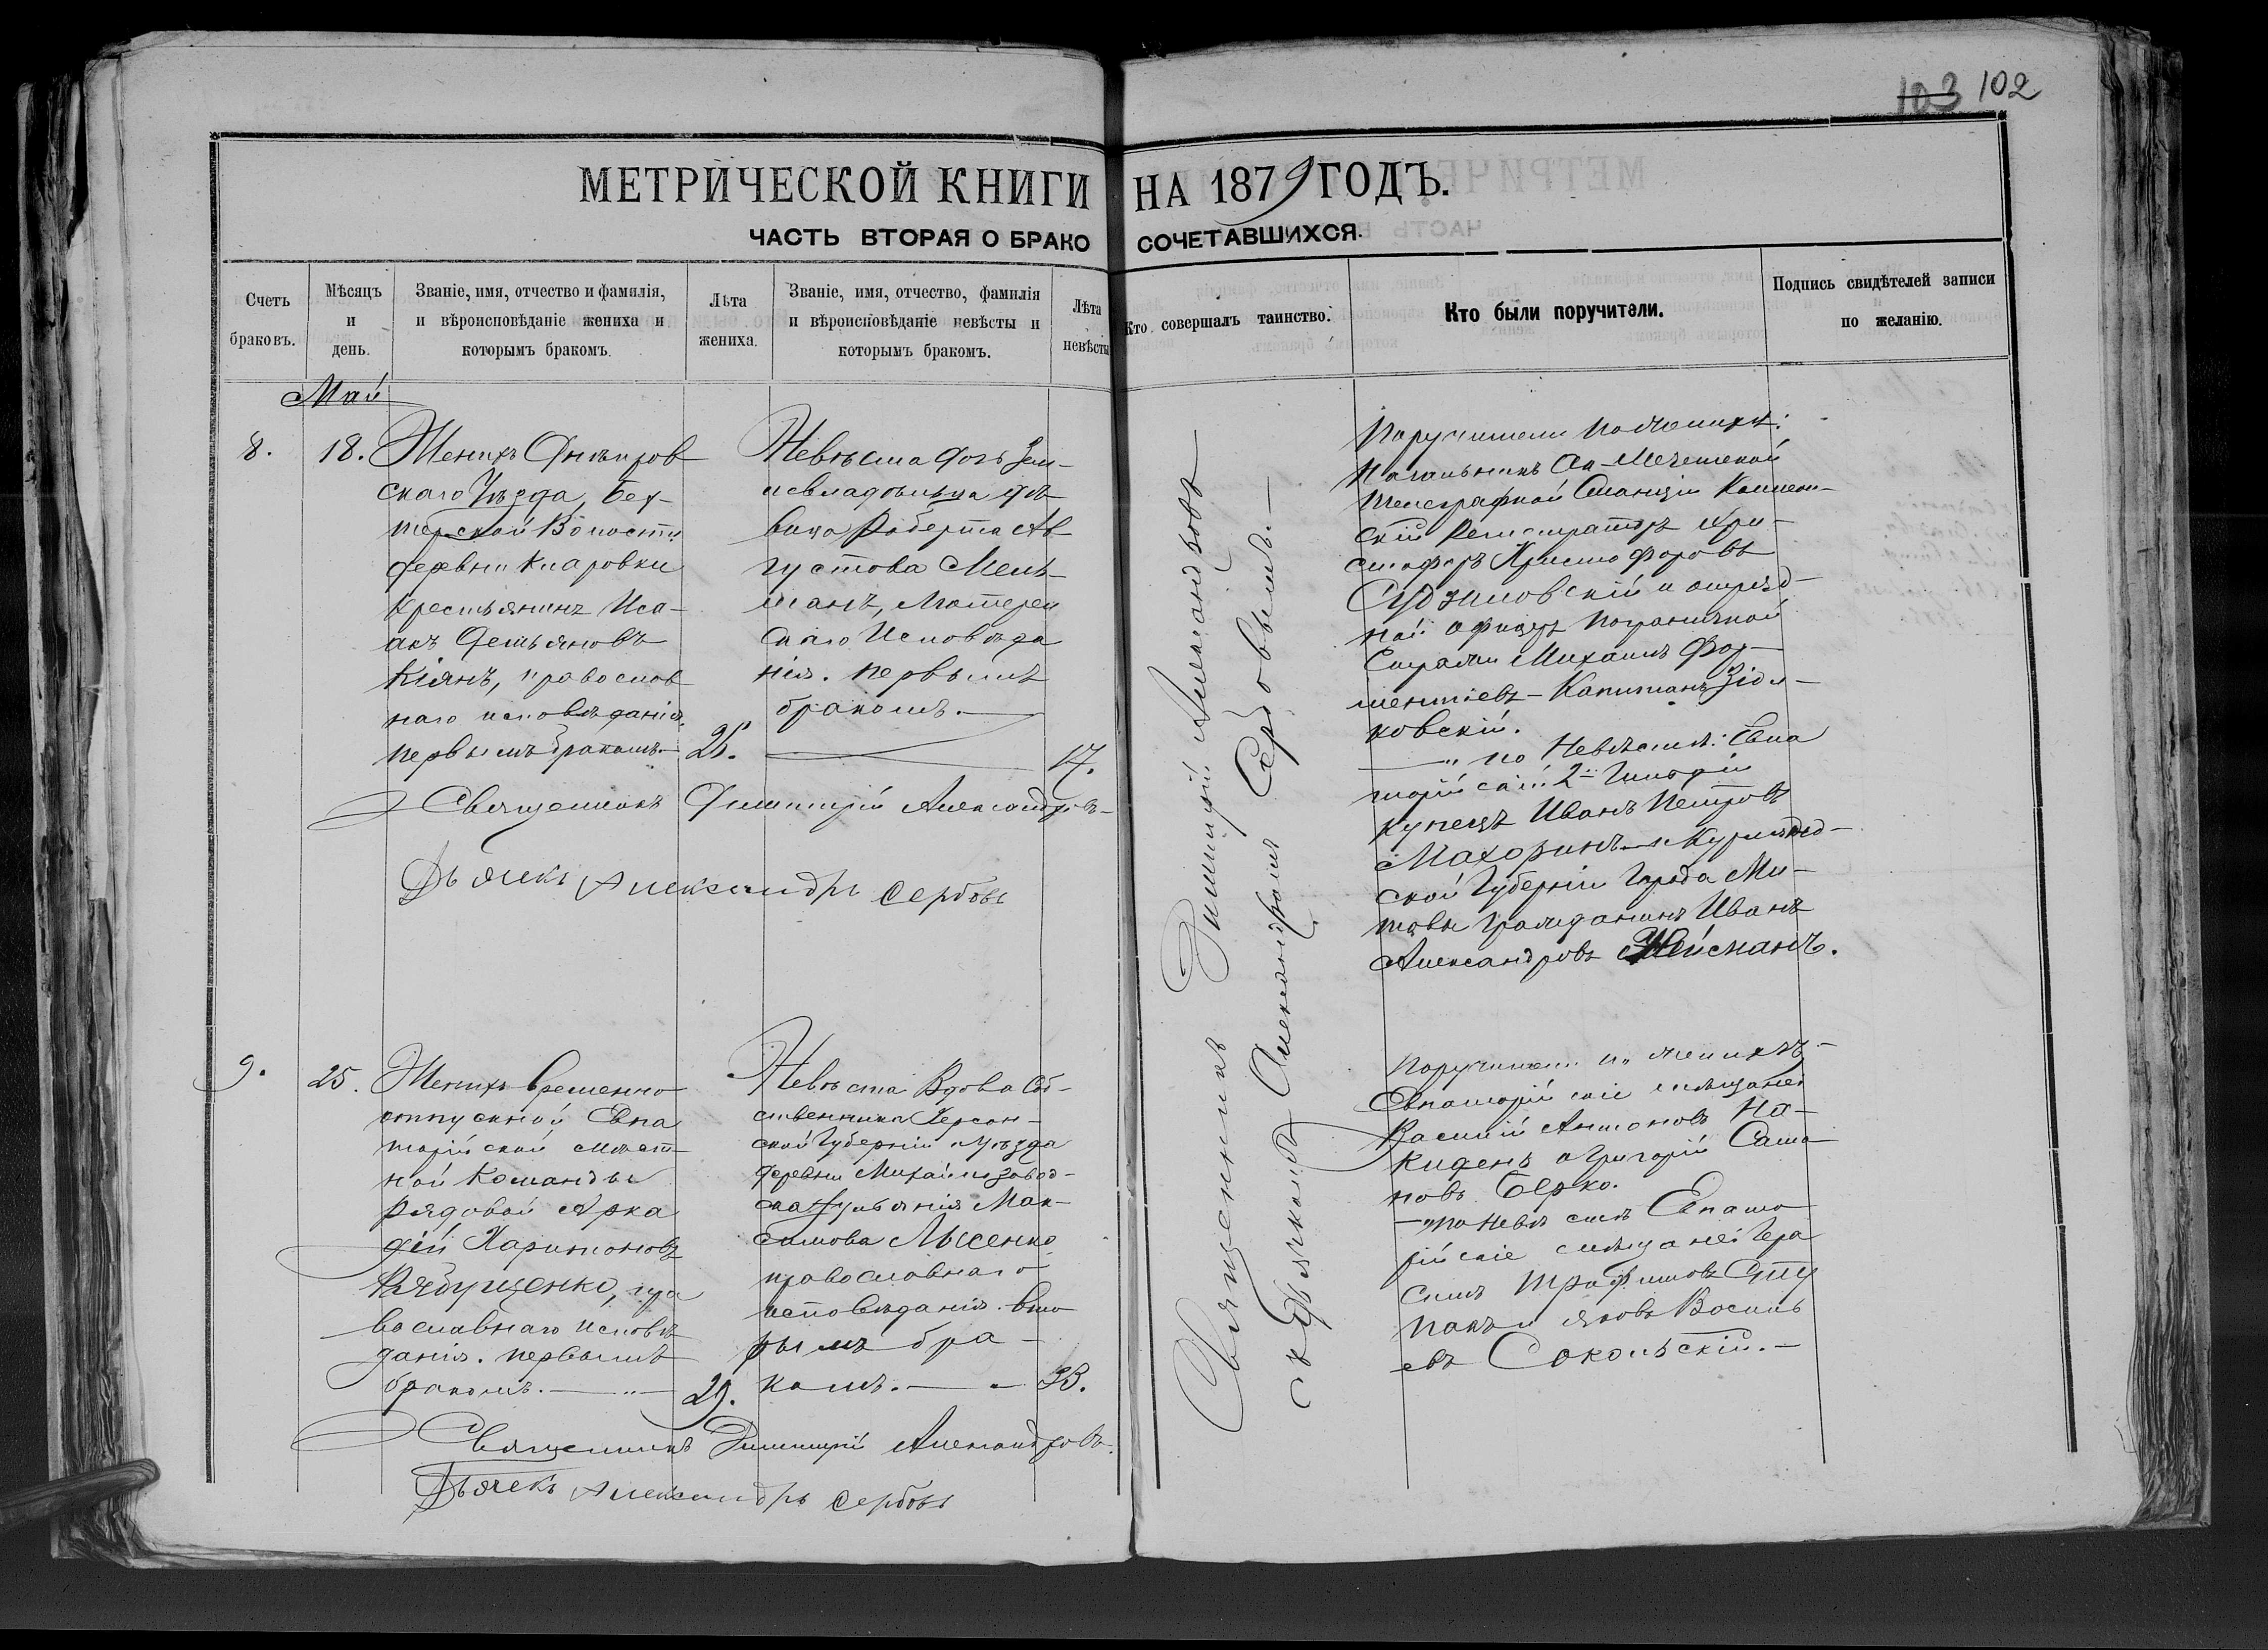 103 102
МЕТРИЧЕСКОЙ КНИГИ НА 1879 ГОДЪ.
ЧАСТЬ ВТОРАЯ О БРАКОСОЧЕТАВШИХСЯ.
Счетъ браковъ.
Мѣсяцъ и день.
Званіе, имя, отчество и фамилія,
и вѣроисповѣданіе жениха и
которымъ бракомъ.
Лѣта жениха.
Званіе, имя, отчество, фамилія
и вѣроисповѣданіе невѣсты и
которымъ бракомъ.
Лѣта невѣсты
Кто совершалъ таинство.
Кто были поручители.
Подпись свидѣтелей записи
по желанію.
Май
8.
18.
Женихъ Днѣпров
скаго Уѣзда, Бех-
терской Волости
деревни Кларовки
Крестьянинъ Иса-
акъ Демьяновъ
Кіянъ, православ
наго исповѣданія.
первымъ бракомъ.—
25.
Невѣста дочь Зем-
левладѣльца дѣ
вица Роберта Ав
густова
Лютеран
скаго Исповѣда
нія. первымъ
бракомъ.—
17.
Священникъ Димитрій Александровъ
Дьячекъ Александръ Сербовъ
Священникъ Димитрій Александровъ
съ Дьячкомъ Александромъ Сербовымъ.—
Поручители по женихѣ:
Начальникъ Ак-Мечетской
Телеграфной Станціи Коллеж-
скій Регистраторъ Хри-
стофоръ Христофоровъ
и отряд-
ной офицеръ пограничной
Стражи Михаилъ
Капитанъ
ковскій.
—„ по Невѣстѣ: Евпа
торійскій 2й Гильдіи
купецъ Иванъ Петровъ
Махоринъ и Курлянд-
ской Губерніи Города Ми-
тавы Гражданинъ Иванъ
Александровъ Нейсманъ.
9.
25.
Женихъ временно
отпускной Евпа
торійской мѣст-
ной Команды
рядовой Арка
дій Харитоновъ
Рябущенко, пра
вославнаго исповѣ
данія. первымъ
бракомъ.—„—
29.
Невѣста Вдова Соб-
ственника Херсон-
ской Губерніи и Уѣзда
деревни Михайлозавод-
ска Ульянія Мак-
симова Лысенко
православнаго
исповѣданія. вто
рымъ бра-
комъ.—
33.
Священникъ Димитрій Александровъ.
Дьячекъ Александръ Сербовъ
Поручители по женихѣ
Евпаторійскіе мѣщане:
Василій Антоновъ На-
киденъ и Григорій
новъ Берко.
—„по невѣстѣ Евпато
рійскіе мѣщане: Гера
симъ Трофимовъ Сту
пакъ и Яковъ Василь
евъ Сокольскій.—